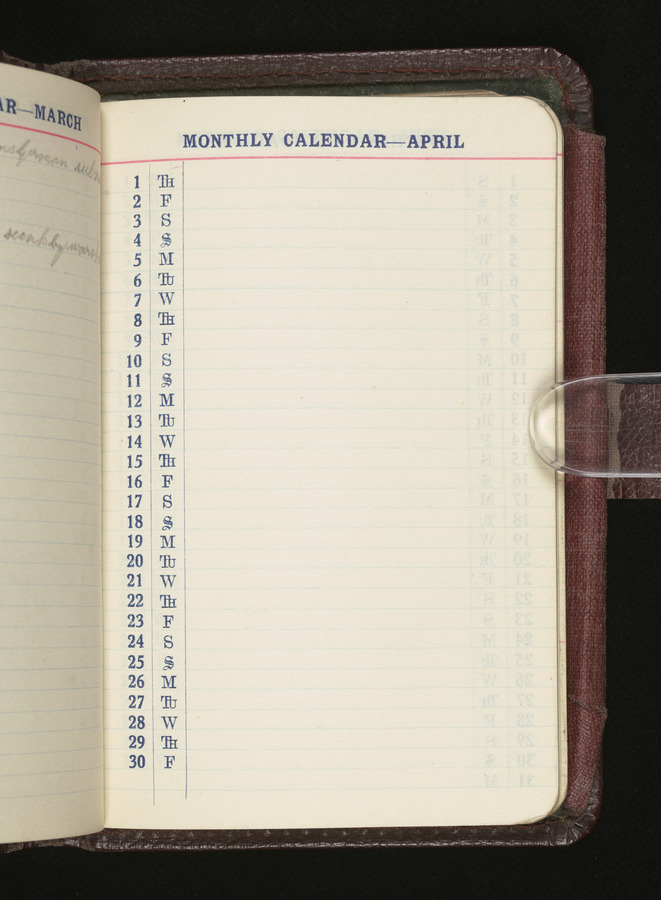 AR—MARCH
MONTHLY CALENDAR—APRIL
1 TH
2 F
3 S
4 S
5 M
6 TU
7 W
8 TH
9 F
10 S
11 S
12 M
13 TU
14 W
15 TH
16 F
17 S
18 S
19 M
20 TU
21 W
22 TH
23 F
24 S
25 S
26 M
27 TU
28 W
29 TH
30 F